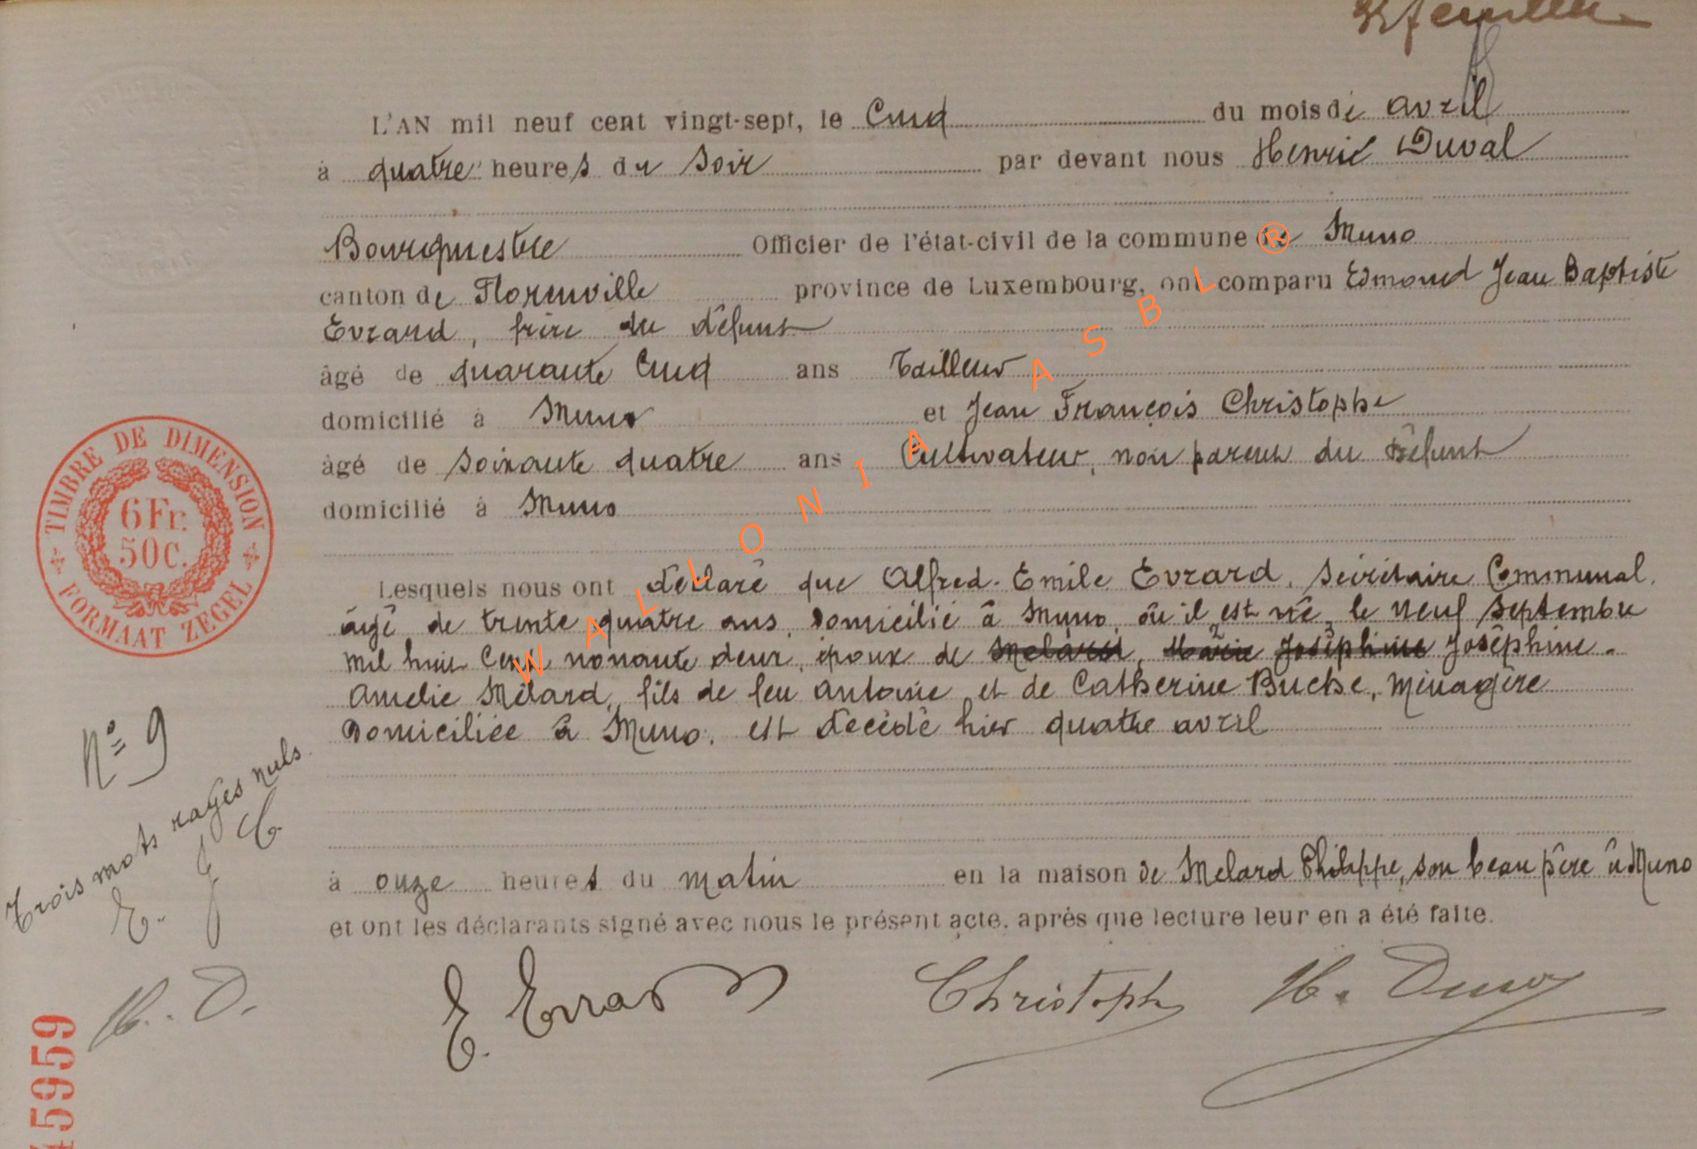 L'AN mil neuf cent vingt-sept, le Cinq du mois de avril
à quatre heures du soir par devant nous Henri Duval
Bourgmestre Officier de l'état-civil de la commune de Muno
canton de Florenville province de Luxembourg, ont comparu Edmond Jean Baptiste
Evrard, frère du défunt
âgé de quarante Cinq ans Tailleur
domicilié à Muno et Jean François Christophe
âgé de soixante quatre ans Cultivateur, non parent du défunt
domicilié à Muno
Lesquels nous ont déclaré que Alfred-Emile Evrard, secrétaire Communal,
âgé de trente quatre ans, domicilié à Muno, où il est né, le neuf septembre
mil huit cent nonante deux, époux de Melard, Marie Joséphine Joséphine-
Amelie Mélard, fils de feu Antoine et de Catherine Buche, Ménagère
Domiciliée à Muno, est décédé hier quatre avril
à onze heures du matin en la maison de Melard Philippe, son beau père à Muno
et ont les déclarants signé avec nous le présent acte, après que lecture leur en a été faite.
E. Evrard Christophe H. Duval
TIMBRE DE DIMENSION
6 Fr.
50 C.
FORMAAT ZEGEL
N° 9
Trois mots rayés nuls.
E. J. C.
H. D.
45959
WALLONIA ASBL ®